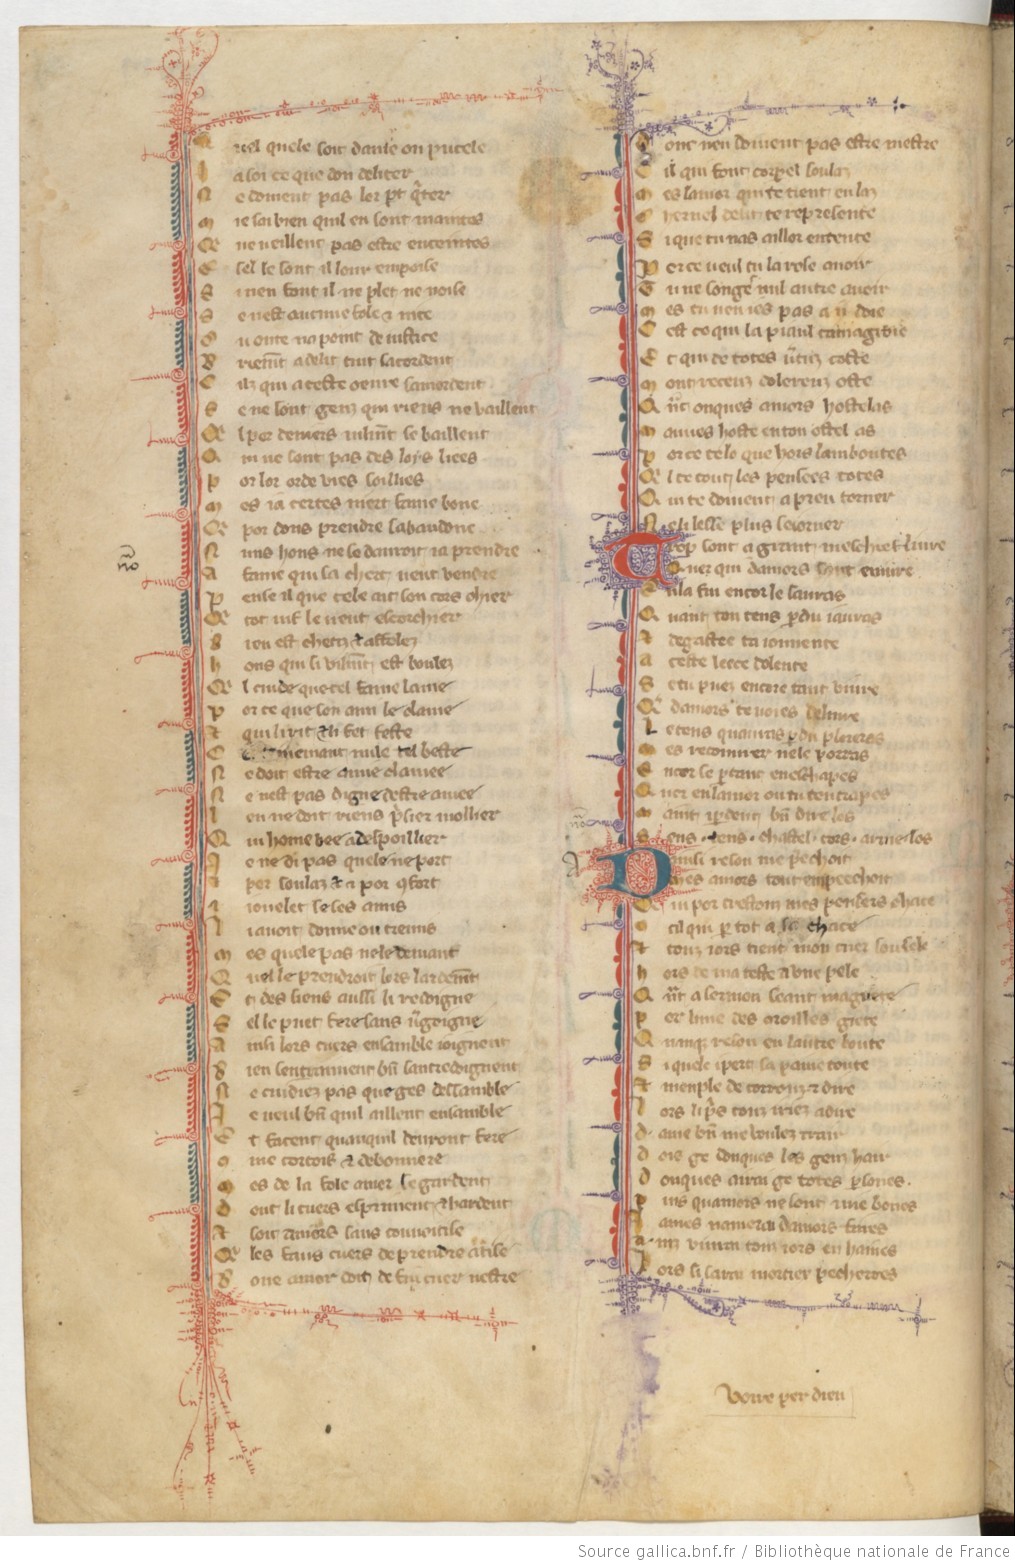 Quel quele soit dame ou pucele
Ja soi ce que don deliter
Ne doivent pas lor pt q̃ter
Mes je sai bien quil en sont maintes
Qe ne veillent pas estre enceintes
E sel le sont il lour empoise
Si nen font il ne plet ne noise
Se nest aucune fole et nice
Ou onte na point de iustice
Briemt a delit tuit sacordent
Cilz qui a ceste oevre samordent
Se ne sont genz qui riens ne vaillent
Qe lper deniers se baillent
Qui ne sont pas des loys liees
Por lor orde vies soillies
Mes ia certes niert fame bone
Qe por dons prendre sabandone
Nuns hons ne se dauroit ia prendre
A fame qui sa chert veut vendre
Pense il que tele ait son cors chier
Qe tot vif le veut escorchier
Bien est chetz et affolez
Hons qui si est boulez
Qe l cuide que tel fame laime
Por ce que son ami le claime
Et qui li rit et li fet feste
Certainement nule tel beste
Ne doit estre amie clamee
Ne nest pas digne destre amee
Len ne doit riens prisier mollier
Qui home bee a despoillier
Je ne di pas quele ne port
Et per soulaz et por confort
Jouelet se ses amis
Li avoit donne ou tremis
Mes quele pas ne le demant
Quel le prendroit lors laidemt
Et des siens aussi li redoigne
Sel le puet fere sans vgoigne
Ainsi lors cuers ensamble ioignent
Bien sentraiment bn santredoignent
Ne cuidiez pas que ges dessamble
Je veul bn quil aillent ensamble
Et facent quanquil deuront fere
Come cortois et debonnere
Mes de la fole amer se gardent
Dont li cuers esprinent et hardent
Et soit amors sans couvoitise
Qe les faus cuers de prendre atise
Bone amor doit de fin cuer nestre
Dont nen doivent pas estre mestre
Ne qui font corpel soulaz
Mes lamor qui te tient en laz
Charnel delit te represente
Si que tu nas aillor entente
Por ce veul tu la rose avoir
Tu ne songes nul autre avoir
Mes tu nen ies pas a ii doie
Cest ce qui la piau tamagroie
Et qui de totes vtuz toste
Mont receuz dolereuz oste
Qnt onques amors hostelas
Mauves hoste en ton ostel as
Por ce te lo que hors lamboutes
Qe l te tout les pensees totes
Qui te doivent a preu torner
Ne li lesse plus seiorner
Trop sont a grant meschief livre
Cuer qui damors sont enivre
En la fin encor le sauras
Quant ton tens pdu i auras
Et degastee ta iouvente
A ceste leece dolente
Se tu puez encore tant vivre
Qe damors te voies delivre
Le tens quauras pdu ploreras
Mes recouvrer ne le porras
Encor se p tant en eschapes
Quer en lamor ou tu tentrapes
Maint i perdent bn dire los
Sens. tens. chastel. cors. ame. los
Ainsi reson me preschoit
Mes amors tout empeechoit
Qe
cil qui p tot a sa chace
Et touz iors tient mon cuer souz sele
Hors de ma teste a une pele
Qnt a sermon seant maguete
Per lune des oroilles giete
Quanq reson en lautre boute
Si quele i pert sa paine toute
Et mempple de corrouz et dire
Lors li pris touz iriez a dire
Dame bn me voulez trair
Dois ge donques les genz hair
Donques aurai ge totes persones.
Puis quamors ne sont mie bones
James namerai damors fines
Ainz vivrai touz iors en haines
Lors si serai mortier pecherres
Voire per dieu
Source gallica.bnf.fr / Bibliothèque nationale de France